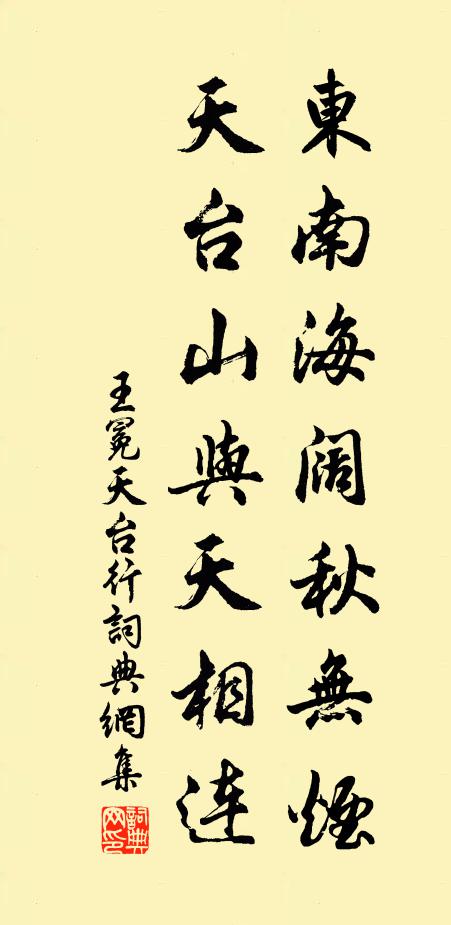 東南海闊秋無煙
天台山與天相連
王冕天台行詞典網集
詞典網印